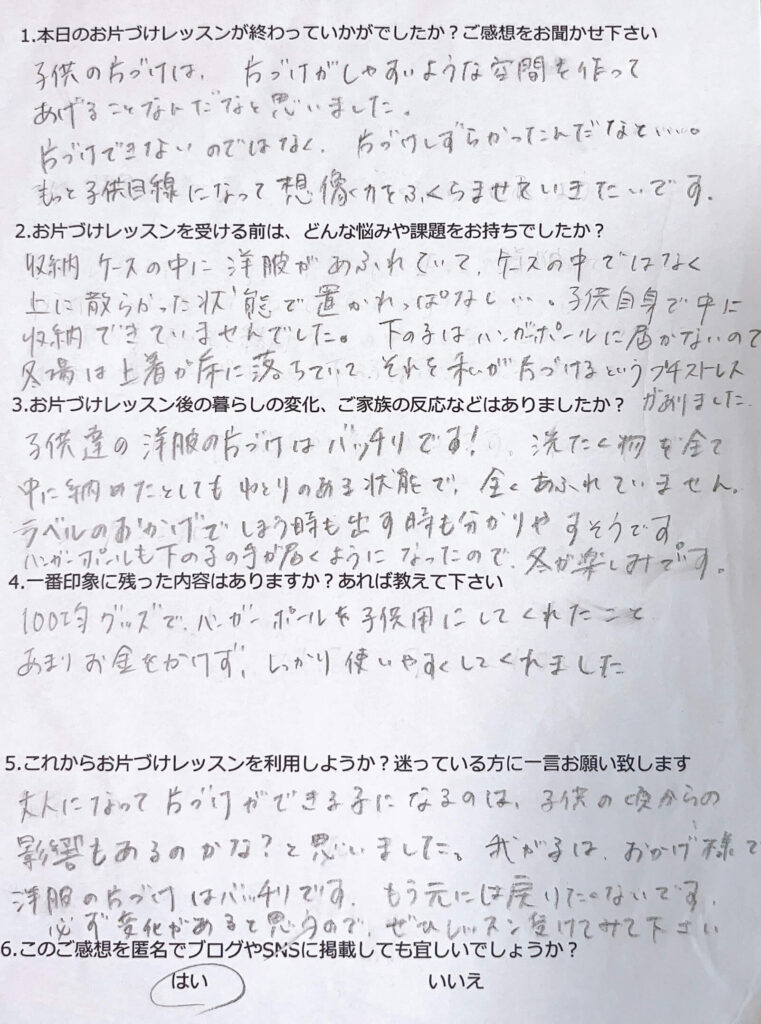 1.本日のお片づけレッスンが終わっていかがでしたか？ご感想をお聞かせ下さい
子供の片づけは、片づけがしやすいような空間を作って
あげることなんだなと思いました。
片づけできないのではなく、片づけしずらかったんだなと…。
もっと子供目線になって想像力をふくらませていきたいです。
2.お片づけレッスンを受ける前は、どんな悩みや課題をお持ちでしたか？
収納ケースの中に洋服があふれていて、ケースの中ではなく
上に散らかった状態で置かれっぱなし…。子供自身で中に
収納できていませんでした。下の子はハンガーポールに届かないので
冬場は上着が床に落ちていて、それを私が片づけるというプチストレス
がありました。
3.お片づけレッスン後の暮らしの変化、ご家族の反応などはありましたか？
子供達の洋服の片づけはバッチリです！、洗たく物を全て
中に納めたとしてもゆとりのある状態で、全くあふれていません。
ラベルのおかげでしまう時も出す時も分かりやすそうです。
ハンガーポールも下の子の手が届くようになったので、冬が楽しみです。
4.一番印象に残った内容はありますか？あれば教えて下さい
100均グッズで、ハンガーポールを子供用にしてくれたこと
あまりお金をかけず、しっかり使いやすくしてくれました
5.これからお片づけレッスンを利用しようか？迷っている方に一言お願い致します
大人になって片づけができる子になるのは、子供の頃からの
影響もあるのかな？と思いました。我が子は、おかげ様で
洋服の片づけはバッチリです。もう元には戻りたくないです。
必ず変化があると思うので、ぜひレッスン受けてみて下さい
6.このご感想を匿名でブログやSNSに掲載しても宜しいでしょうか？
はい いいえ